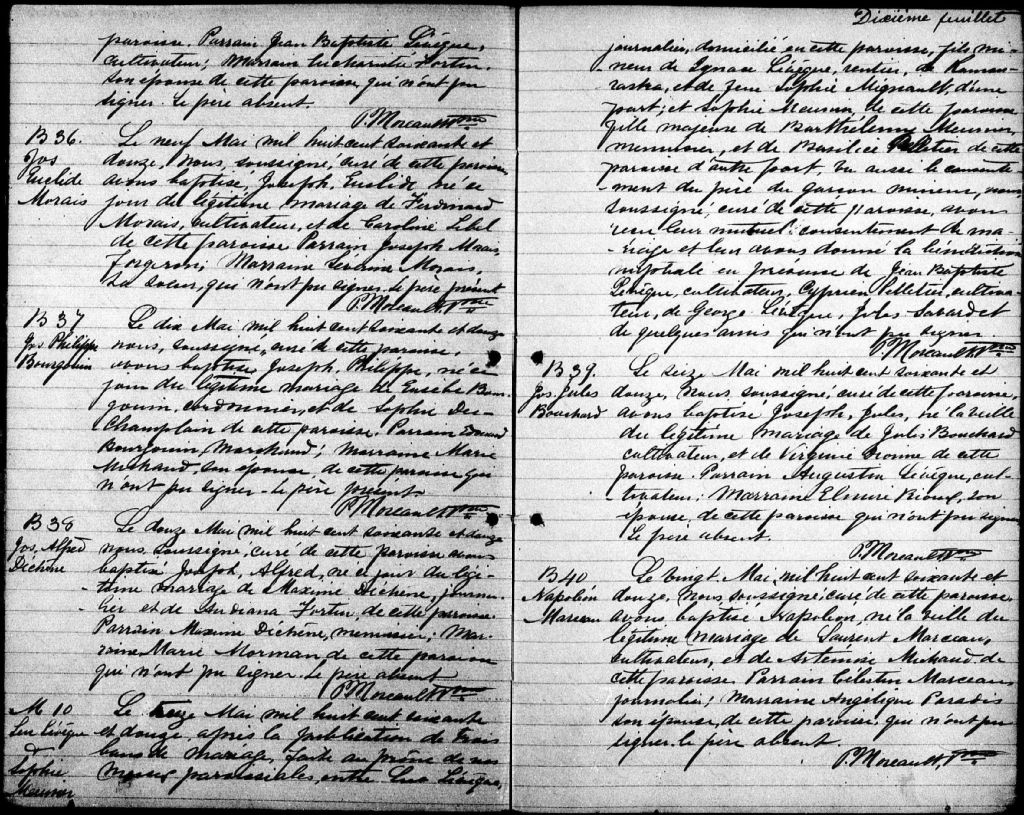 paroisse. Parrain Jean Baptiste Lévêque,
cultivateur; Marraine Eucharistie Fortin,
son épouse de cette paroisse qui n'ont pu
signer. Le père absent.
P. Moreault Ptre
B 36.
Jos
Euclide
Morais
Le neuf Mai mil huit cent soixante et
douze, nous, soussigné, curé de cette paroisse,
avons baptisé, Joseph, Euclide, né ce
jour du légitime mariage de Ferdinand
Morais, cultivateur, et de Caroline Lebel
de cette paroisse Parrain Joseph Morais,
Forgeron; Marraine Morais,
sa soeur, qui n'ont pu signer. Le père présent
P. Moreault, Ptre
B 37
Jos Philippe
Bourgouin
Le dix Mai mil huit cent soixante et douze
nous, soussigné, curé de cette paroisse,
avons baptisé Joseph, Philippe, né ce
jour du légitime mariage d'Eusèbe Bour-
gouin, cordonnier, et de Sophie De-
Champlain de cette paroisse. Parrain Edouard
Bourgouin, Marchand; Marraine Marie
Michaud, son épouse de cette paroisse qui
n'ont pu signer. Le père présent.
P. Moreault Ptre
B 38
Jos, Alfred
Dichêne
Le douze Mai mil huit cent soixante et douze
nous, soussigné, curé de cette paroisse avons
baptisé Joseph, Alfred, né ce jour du légi-
-time mariage de Maxime Dichêne, journa-
-lier et de Fortin, de cette paroisse.
Parrain Maxime Dichêne, menuisier; Mar-
raine Marie Morman de cette paroisse
qui n'ont pu signer. Le père absent
P. Moreault Ptre
M 10
Luc Lévêque
&
Sophie
Meunier
Le treize Mai mil huit cent soixante
et douze, après la publication de trois
bans de mariage, faite au prône de nos
messes paroissiales, entre Luc Lévêque,
Dixième feuillet
journalier, domicilié en cette paroisse, fils mi-
-neur de Ignace Lévêque, rentier, de Kamou-
-raska, et de feue Sophie Mignault, d'une
part; et Sophie Meunier, de cette paroisse
fille majeure de Barthélemy Meunier,
menuisier, et de Basilice Pelletier de cette
paroisse d'autre part, vu aussi le consente-
-ment du père du garçon mineur, nous
soussigné, curé de cette paroisse, avons
reçu leur mutuel consentement de ma-
-riage et leur avons donné la bénédiction
nuptiale en présence de Jean Baptiste
Lévêque, cultivateur, Cyprien Pelletier, cultiva-
teur, de George Lévêque, Jules Sabard et
de quelques amis qui n'ont pu signer
P. Moreault Ptre
B 39.
Jos, Jules
Bouchard
Le seize Mai mil huit cent soixante et
douze, nous soussigné, curé de cette paroisse,
avons baptisé Joseph, Jules, né la veille
du légitime mariage de Jules Bouchard
cultivateur, et de Virginie Dionne de cette
paroisse. Parrain Augustin Lévêque, cul-
tivateur; Marraine Elmire Rioux, son
épouse, de cette paroisse qui n'ont pu signer
Le père absent.
P. Moreault Ptre
B 40
Napoléon
Marceau
Le vingt Mai, mil huit cent soixante et
douze, nous soussigné, curé de cette paroisse
avons baptisé Napoléon, né la veille du
légitime mariage de Laurent Marceau,
cultivateur, et de Artémise Michaud de
cette paroisse. Parrain Célestin Marceau
journalier; Marraine Angélique Paradis
son épouse, de cette paroisse, qui n'ont pu
signer. Le père absent.
P. Moreault, Ptre